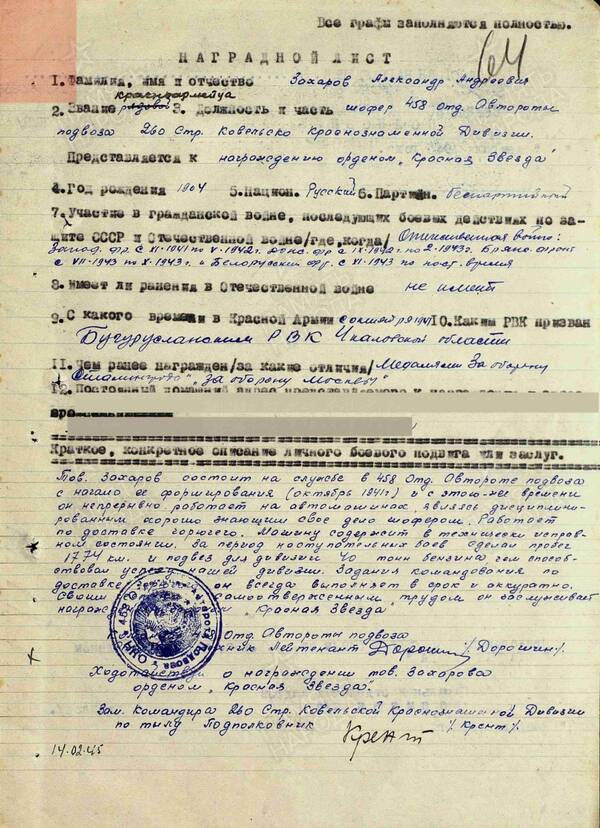 Все графы заполняются полностью.
64
НАГРАДНОЙ ЛИСТ
1. Фамилия, имя и отчество Захаров Александр Андреевич
красноармеец
2. Звание рядовой 3. Должность и часть шофер 458 отд. Автороты
подвоза 260 Стр. Ковельско Краснознаменной Дивизии.
Представляется к награждению орденом „Красная Звезда"
4. Год рождения 1904 5. Национ. Русский 6. Партийн. беспартийный
7. Участие в гражданской войне, последующих боевых действиях по за-
щите СССР и Отечественной войне/где, когда/ Отечественная война:
Запад. фр. с XI-1941 по V-1942г. Донс. фр. с IX-1942г. по 2-1943г. Брянс. фронт
с VII-1943 по X-1943г. и Белорусский фр. с XI-1943 по наст. время
8. Имеет ли ранения в Отечественной войне не имеет
9. С какого времени в Красной Армии с октября 1941 10. Каким РВК призван
Бугурусланским РВК Чкаловской области
11. Чем ранее награжден/за какие отличия/ Медалями За оборону
Сталинграда" „За оборону Москвы"
12. Постоянный домашний адрес
Краткое, конкретное описание личного боевого подвига или заслуг.
Тов. Захаров состоит на службе в 458 отд. Автороте подвоза
с начало ее формирования (октябрь 1941г) и с этого-же времени
он непрерывно работает на автомашинах, являясь дисциплини-
рованным хорошо знающим свое дело шофером. Работает
по доставке горючего. Машину содержит в технически исправ-
ном состоянии. За период наступательных боев сделал пробег
1774 км. и подвез для дивизии 40 тонн бензина чем способ-
ствовал успеху нашей дивизии. Задания командования по
доставке он всегда выполняет в срок и аккуратно.
Своим самоотверженным трудом он заслуживает
награж „Красная Звезда"
Отд. Автороты подвоза
хник Лейтенант Дорошин /Дорошин/.
Ходатайств о награждении тов. Захарова
орденом „Красная Звезда".
Зам. Командира 260 Стр. Ковельской Краснознаменной Дивизии
по тылу Подполковник Крент /Крент/.
14.02.45